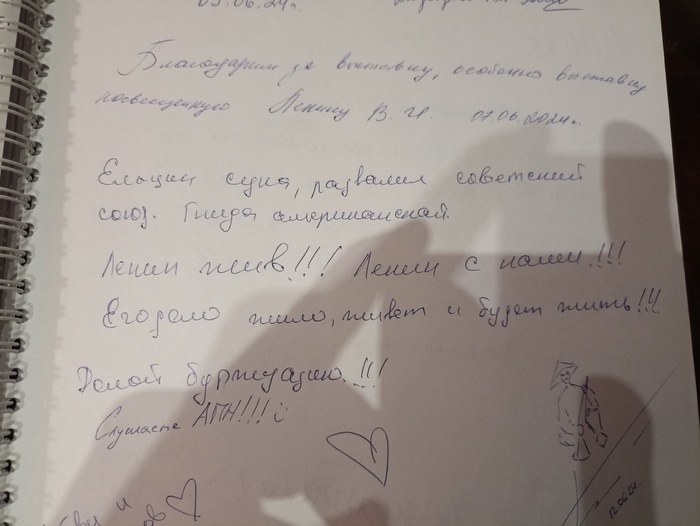 03.06.24г.
Благодарим за выставку, особенно выставку
посвещенную Ленину В. И. 07.06.2024г.
Ельцин сука, развалил советский
союз. Гнида американская.
Ленин жив!!! Ленин с нами!!!
Его дело жило, живет и будет жить!!!
Долой буржуазию!!!
Слушаете АПН!!! :
12.06.24.